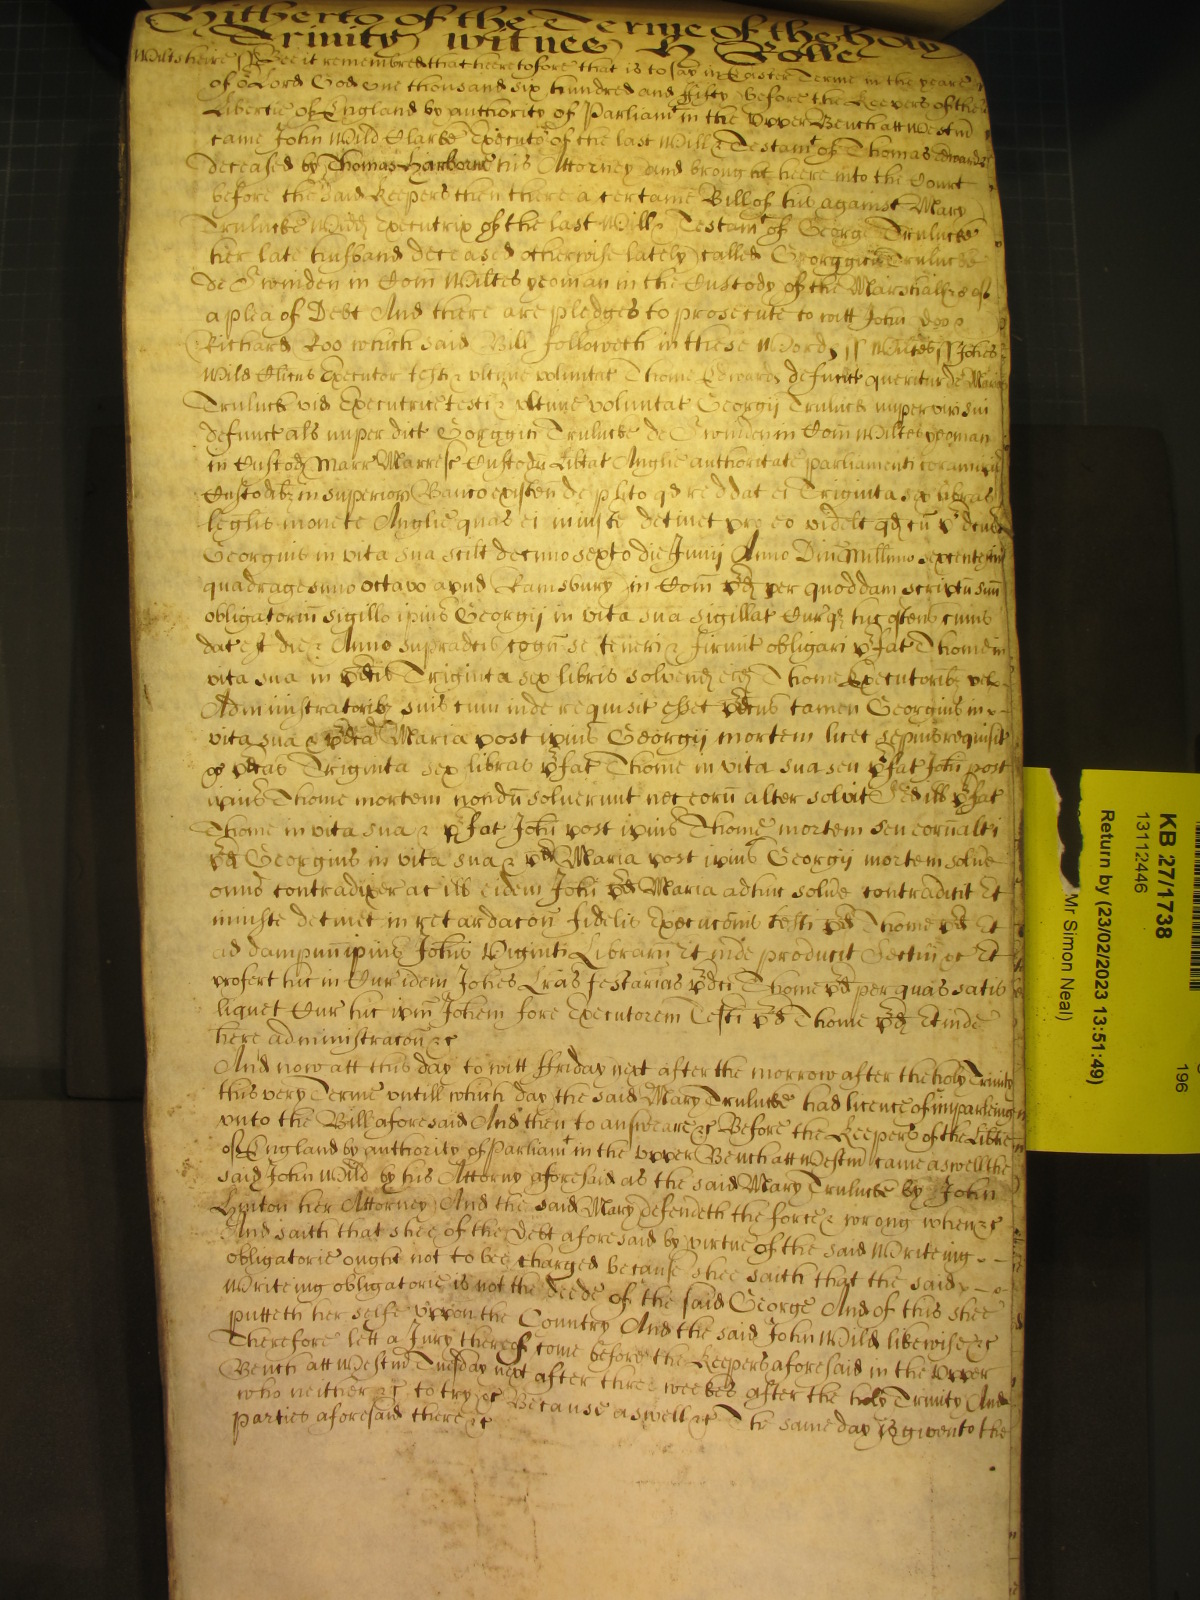 Hitherto of the Terme of the holy
Trinity witnes H Rolle
Wiltsheire ss Bee it remembred that heeretofore that is to say in Easter Terme in the yeare
of or Lord God one thousand six hundred and fifty before the Keepers of the
Libertie of England by authority of Parliamt in the Upper Bench att Westmr
came John Wild Clarke Executor of the last Will & Testamt of Thomas Edwardes
deceased by Thomas Harborne his Attorney and brought heere into the Court
before the said Keepers then there a certaine Bill of his against Mary
Trulucke Widd Executrix of the last Will & Testamt of George Trulucke
her late husband deceased otherwise lately called Trulucke
de Swinden in Com Wiltes yeoman in the Custody of the Marshall &c of
a plea of Debt And there are pledges to prosecute to witt John Doo &
Richard Roo which said Bill followeth in these Words ss Wiltes ss Johes
Wild Clicus Executor testi & ultime voluntat Thome Edwards defuncti queritur de Maria
Truluck vid Executrice testi & ultime voluntat Georgij Truluck nuper viri sui
defunct als nuper dict Trulucke de Swinden in Com Wiltes yeoman
in Custod Marr Marresc Custodu Libtat Anglie authoritate parliamenti coram
Custodibz in superiori Banco existen de plito qd reddat ei Triginta sex libras
leglis monete Anglie quas ei iniuste detinet pro eo videlt qd cu pdcus
Georgius in vita sua scilt decimo sexto die Junij Anno Dni Millimo sexcentesimo
quadragesimo octavo apud Ramsbury in Com pd per quoddam scriptu suu
obligatoriu sigillo ipius Georgij in vita sua sigillat Curqz hic ostens cuius
dat est die & Anno supradcis cogn se teneri & firmit obligari pfat Thome in
vita sua in pdcis Triginta sex libris solvend eid Thome Executoribz vel
Administratoribz suis cum inde requisit esset pdcus tamen Georgius in
vita sua & pdca Maria post ipius Georgij mortem licet sepius requisit
&c pdcas Triginta sex libras pfat Thome in vita sua seu pfat Johi post
ipius Thome mortem nondu solverunt nec eoru alter solvit Sed ill pfat
Thome in vita sua & pfat Johi post ipius Thome mortem seu eorum alti
pd Georgius in vita sua & pd Maria post ipius Georgij mortem solve
omno contradixer ac ill eidem Johi pd Maria adhuc solve contradicit Et
iniuste detinet in retardacon fidelis Execucons testi pd Thome pd Et
ad dampnu ipius Johis Viginti Librarum Et inde producit Sectam &c Et
profert hic in Cur idem Johes Lras testarias pdci Thome pd per quas satis
liquet Cur hic ipm Johem fore Executorem Testi pd Thome pd Et inde
here administracon &c
And now att this day to witt ffriday next after the morrow after the holy Trinity
this very Terme untill which day the said Mary Trulucke had licence of imparleing
unto the Bill aforesaid And then to answeare &c Before the Keepers of the Libtie
of England by authority of Parliamt in the Upper Bench att Westmr came aswell the
said John Wild by his Attorny aforesaid as the said Mary Trulucke by John
Hinton her Attorney And the said Mary defendeth the force & wrong when &c
And saith that shee of the Debt aforesaid by virtue of the said Writeing
obligatorie ought not to bee charged because shee saith that the said
Writeing obligatorie is not the deede of the said George And of this shee
putteth her selfe uppon the Country And the said John Wild likewise &c
Therefore lett a Jury thereof come before the Keepers aforesaid in the Upper
Bench att Westmr Tuesday next after three weekes after the holy Trinity And
who neither &c to try &c Because aswell &c The same day is given to the
parties aforesaid there &c
KB 27/1738
13112446
196
Return by (23/02/2023 13:51:49)
Mr Simon Neal)